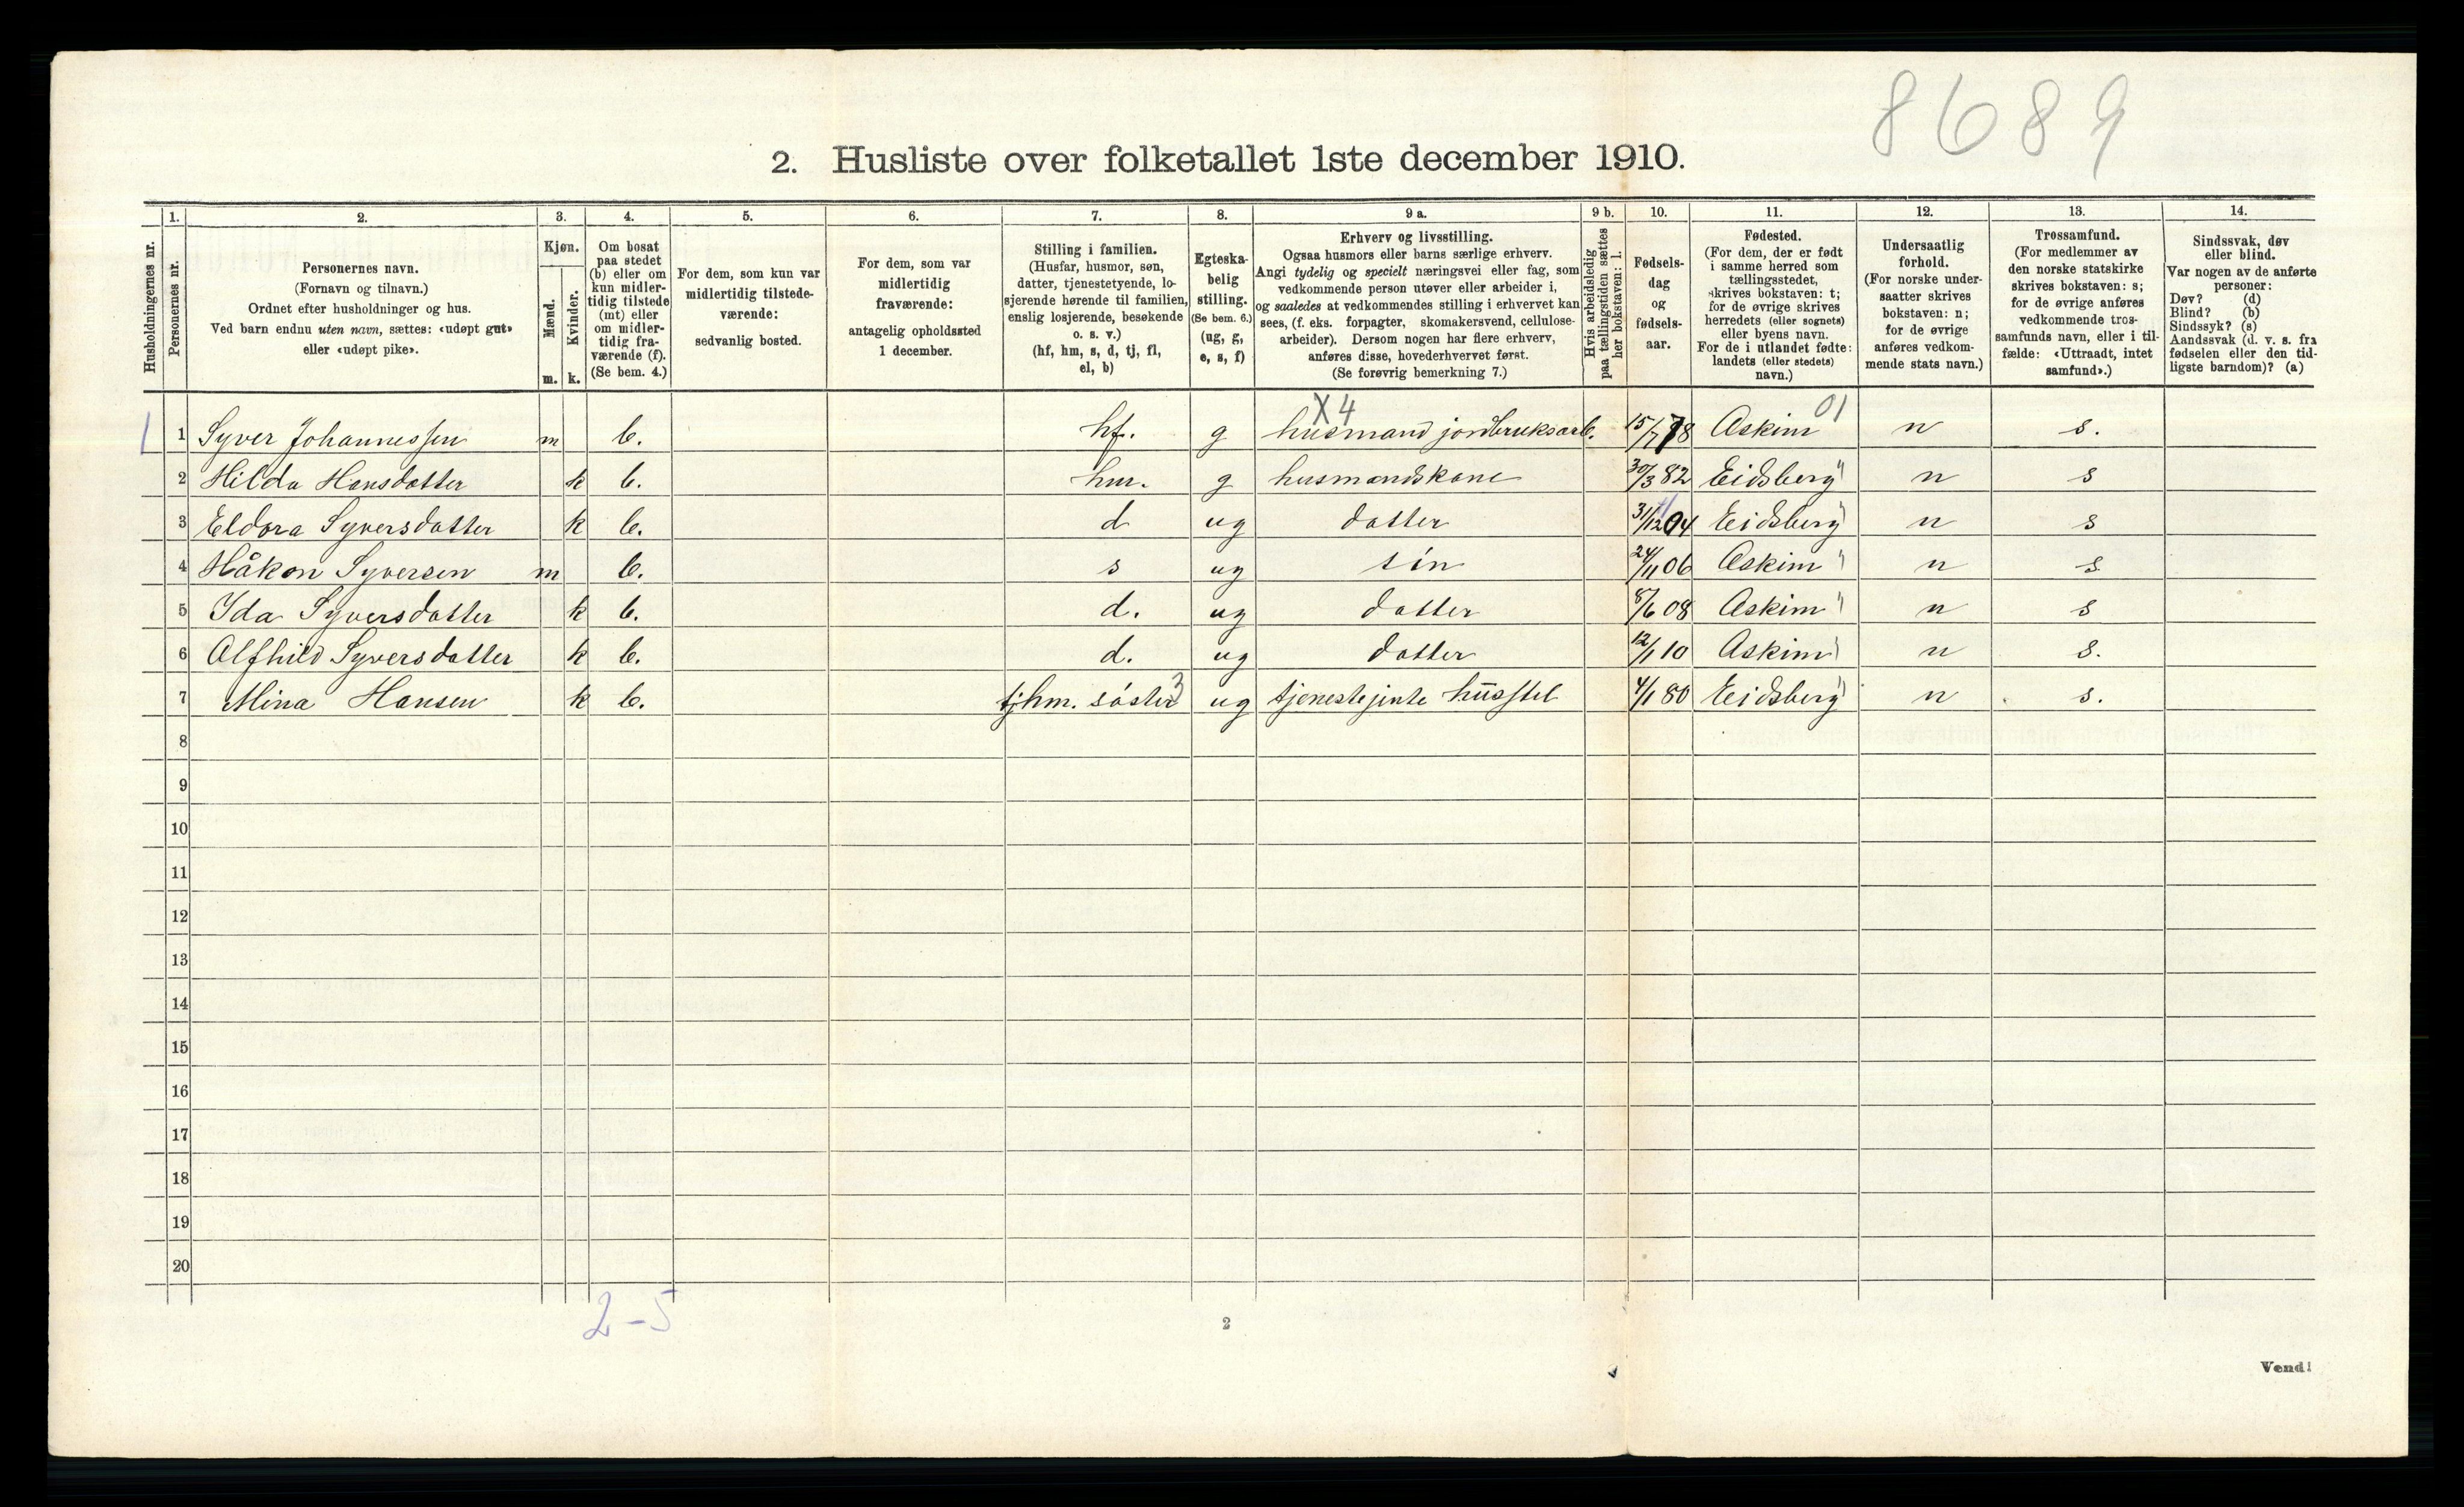 8689
2. Husliste over folketallet 1ste december 1910.
Husholdningernes nr.
1. Personernes nr.
2. Personernes navn.
(Fornavn og tilnavn.)
Ordnet efter husholdninger og hus.
Ved barn endnu uten navn, sættes: «udøpt gut»
eller «udøpt pike».
3. Kjøn.
Mænd. m.
Kvinder. k.
4. Om bosat
paa stedet
(b) eller om
kun midler-
tidig tilstede
(mt) eller
om midler-
tidig fra-
værende (f).
(Se bem. 4.)
5. For dem, som kun var
midlertidig tilstede-
værende:
sedvanlig bosted.
6. For dem, som var
midlertidig
fraværende:
antagelig opholdssted
1 december.
7. Stilling i familien.
(Husfar, husmor, søn,
datter, tjenestetyende, lo-
sjerende hørende til familien,
enslig losjerende, besøkende
o. s. v.)
(hf, hm, s, d, tj, fl,
el, b)
8. Egteska-
belig
stilling.
(Se bem. 6.)
(ug, g,
e, s, f)
9 a. Erhverv og livsstilling.
Ogsaa husmors eller barns særlige erhverv.
Angi tydelig og specielt næringsvei eller fag, som
vedkommende person utøver eller arbeider i,
og saaledes at vedkommendes stilling i erhvervet kan
sees, (f. eks. forpagter, skomakersvend, cellulose-
arbeider). Dersom nogen har flere erhverv,
anføres disse, hovederhvervet først.
(Se forøvrig bemerkning 7.)
9 b. Hvis arbeidsledig
paa tællingstiden sættes
her bokstaven: l.
10. Fødsels-
dag
og
fødsels-
aar.
11. Fødested.
(For dem, der er født
i samme herred som
tællingsstedet,
skrives bokstaven: t;
for de øvrige skrives
herredets (eller sognets)
eller byens navn.
For de i utlandet fødte:
landets (eller stedets)
navn.)
12. Undersaatlig
forhold.
(For norske under-
saatter skrives
bokstaven: n;
for de øvrige
anføres vedkom-
mende stats navn.)
13. Trossamfund.
(For medlemmer av
den norske statskirke
skrives bokstaven: s;
for de øvrige anføres
vedkommende tros-
samfunds navn, eller i til-
fælde: «Uttraadt, intet
samfund».)
14. Sindssvak, døv
eller blind.
Var nogen av de anførte
personer:
Døv? (d)
Blind? (b)
Sindssyk? (s)
Aandssvak (d. v. s. fra
fødselen eller den tid-
ligste barndom)? (a)
X4 01
1 1 Syver Johannessen m b. hf. g husmand jordbruksarb. 15/7 78 Askim n s.
2 Hilda Hansdatter k b. hm. g husmandskone 30/3 82 Eidsberg n s
3 Eldora Syversdatter k b. d ug datter 31/12 04 Eidsberg n s
4 Håkon Syversen m b. s ug sön 24/11 06 Askim n s
5 Ida Syversdatter k b. d. ug datter 8/6 08 Askim n s
6 Alfhild Syversdatter k b. d. ug datter 12/1 10 Askim n s.
7 Mina Hansen k b. tj hm. söster 3 ug tjenestejente hüsstel 4/1 80 Eidsberg n s.
8
9
10
11
12
13
14
15
16
17
18
19
20
2-5
2
Vend!